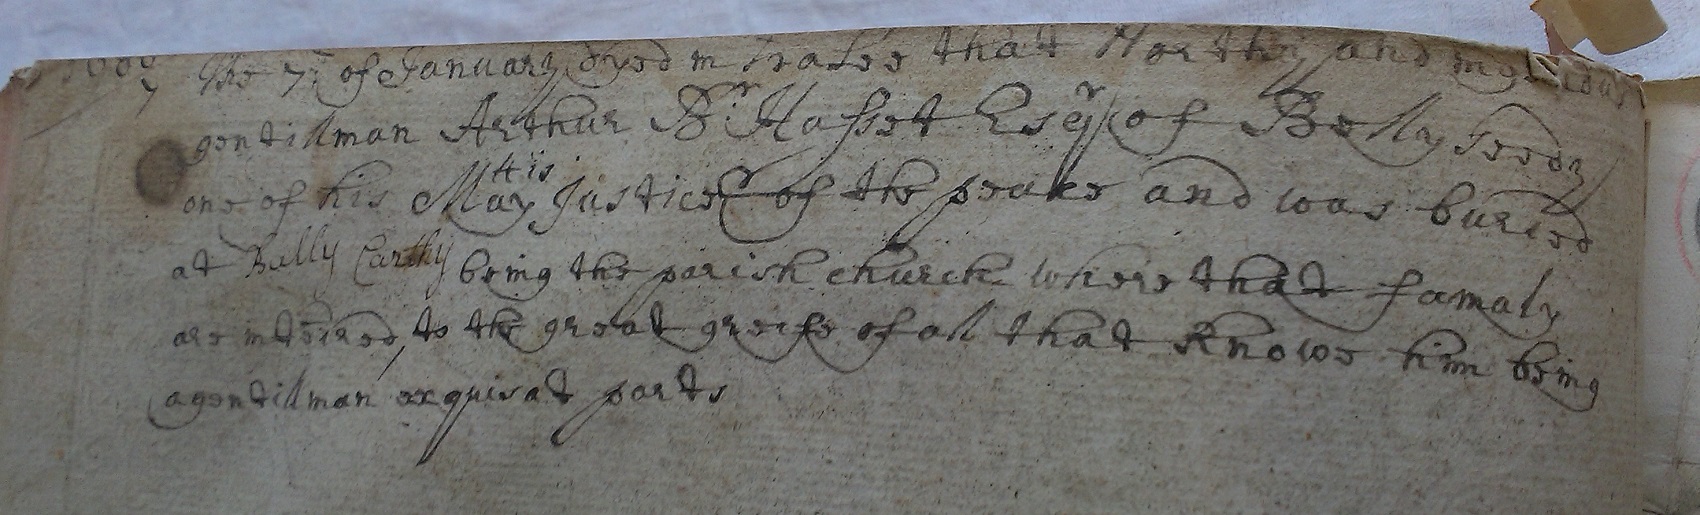 The 7th of January dyed in Tralee that Worthy and
gentillman Arthur Br Hasset Esqr of Bellyseedy
one of his Matis Justices of the peake and was buried
at Bally Carthy being the parish church where that famaly
are interred, to the great greife of all that Knowe him being
agentillman exquisat parts